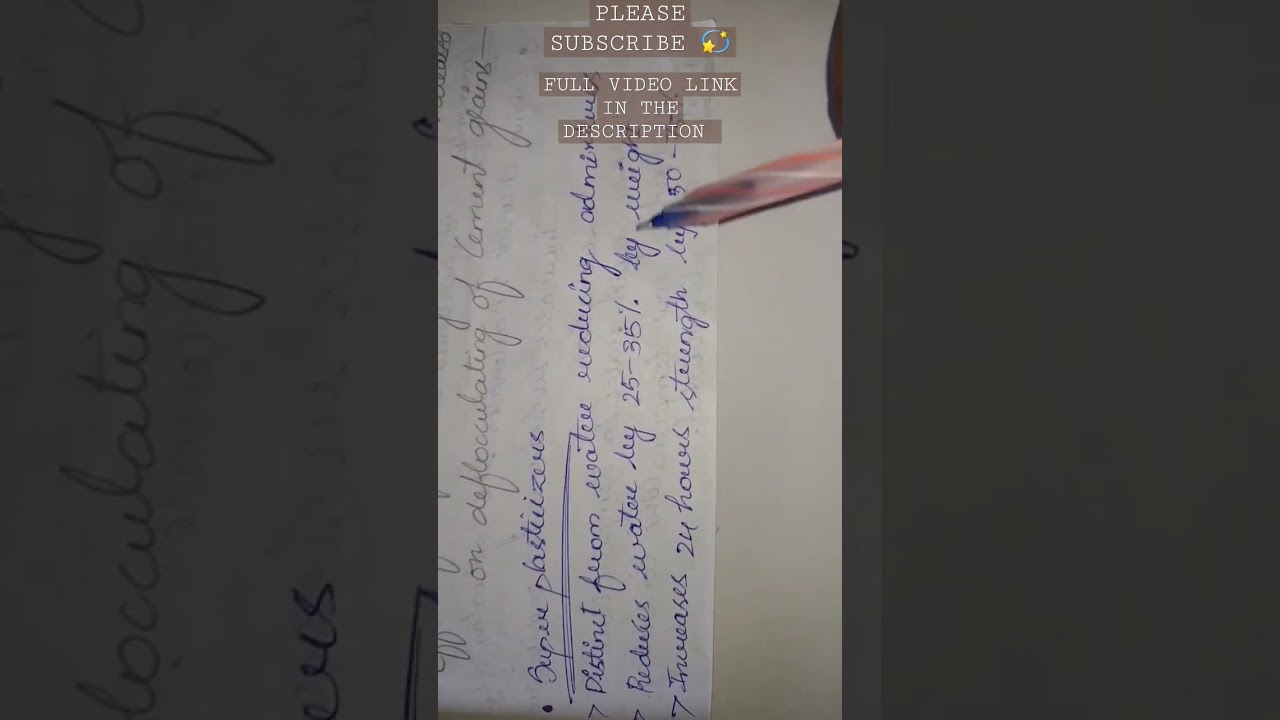 PLEASE
SUBSCRIBE 💫
FULL VIDEO LINK
IN THE
DESCRIPTION
on deflocculating of Cement grains—
• Super plasticizers
> Distinct from water reducing
> Reduces water by 25-35% by weight
> Increases 24 hours strength by 50-